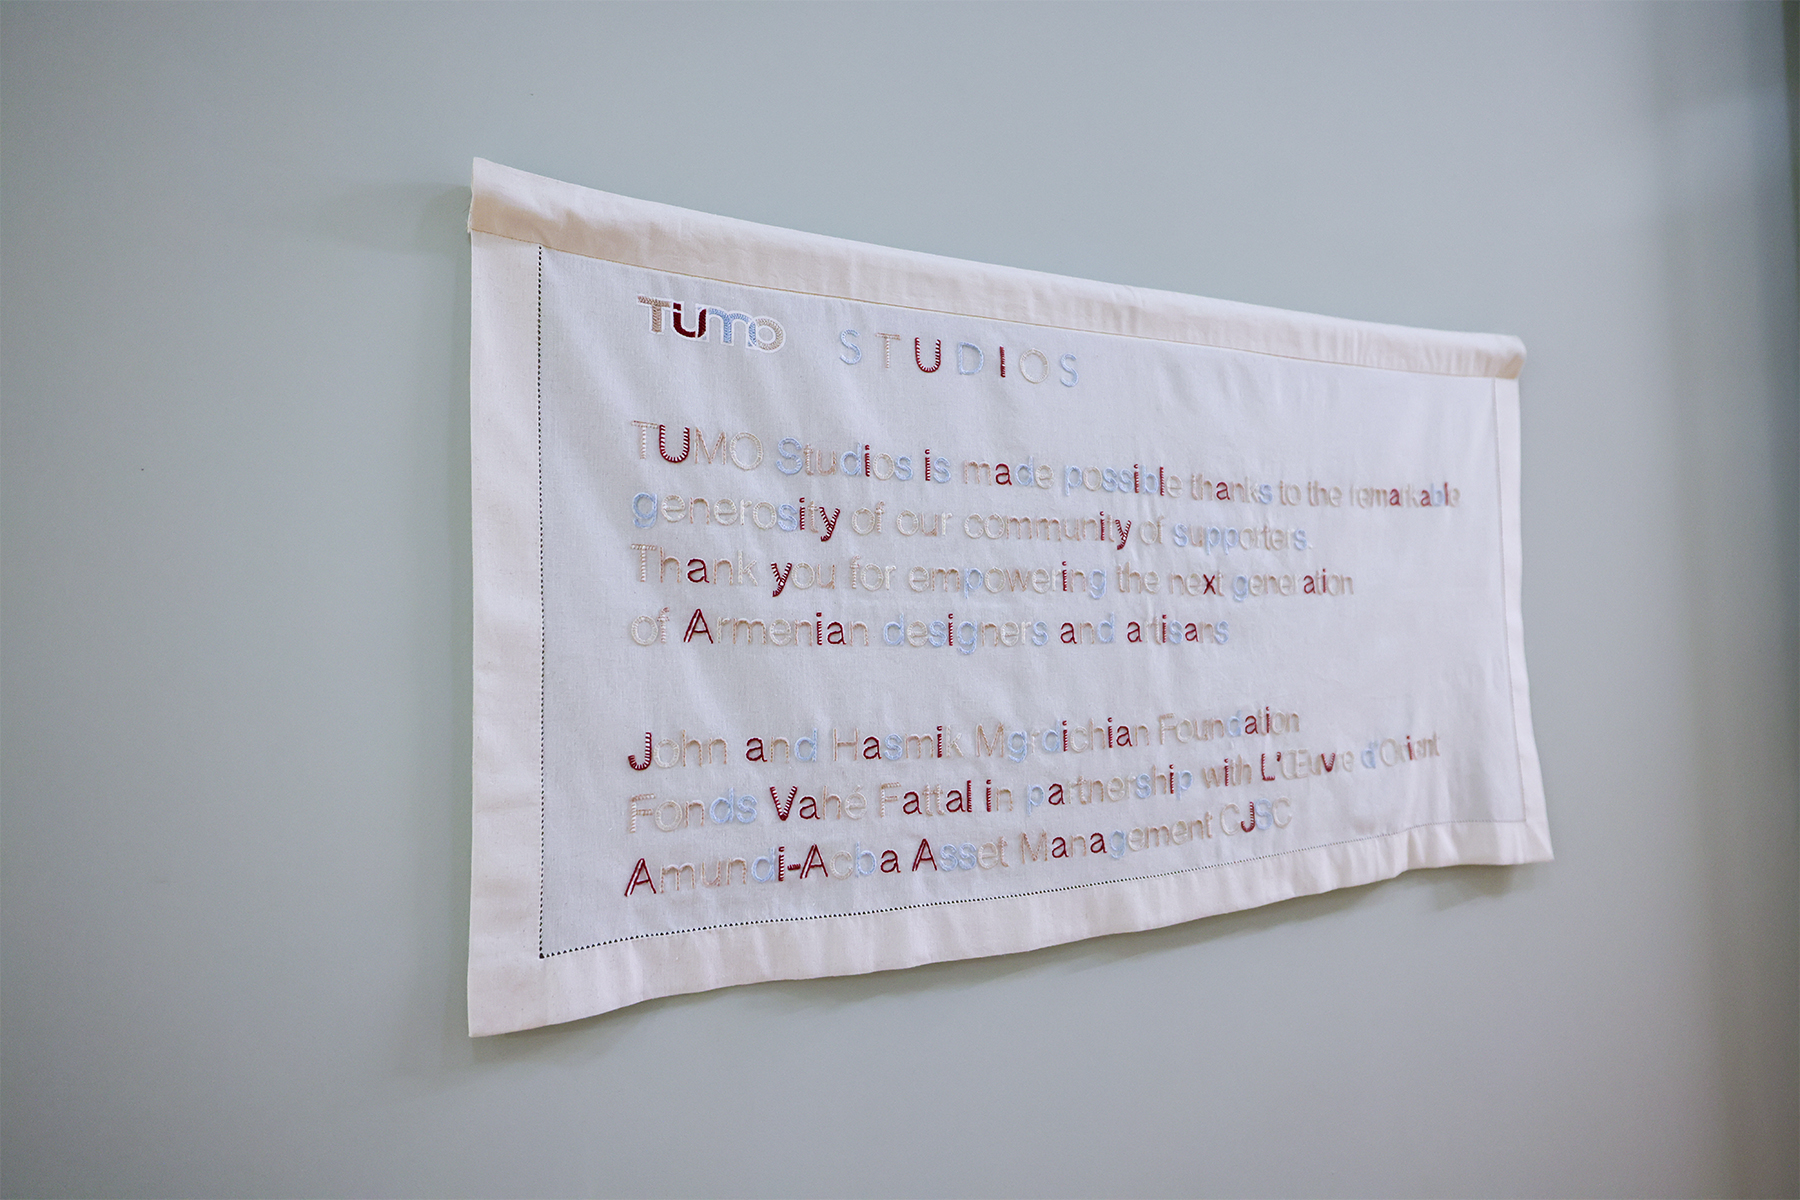 TUMO STUDIOS
TUMO Studios is made possible thanks to the remarkable
generosity of our community of supporters.
Thank you for empowering the next generation
of Armenian designers and artisans
John and Hasmik Mgrdichian Foundation
Fonds Vahé Fattal in partnership with L'Œuvre d'Orient
Amundi-Acba Asset Management CJSC